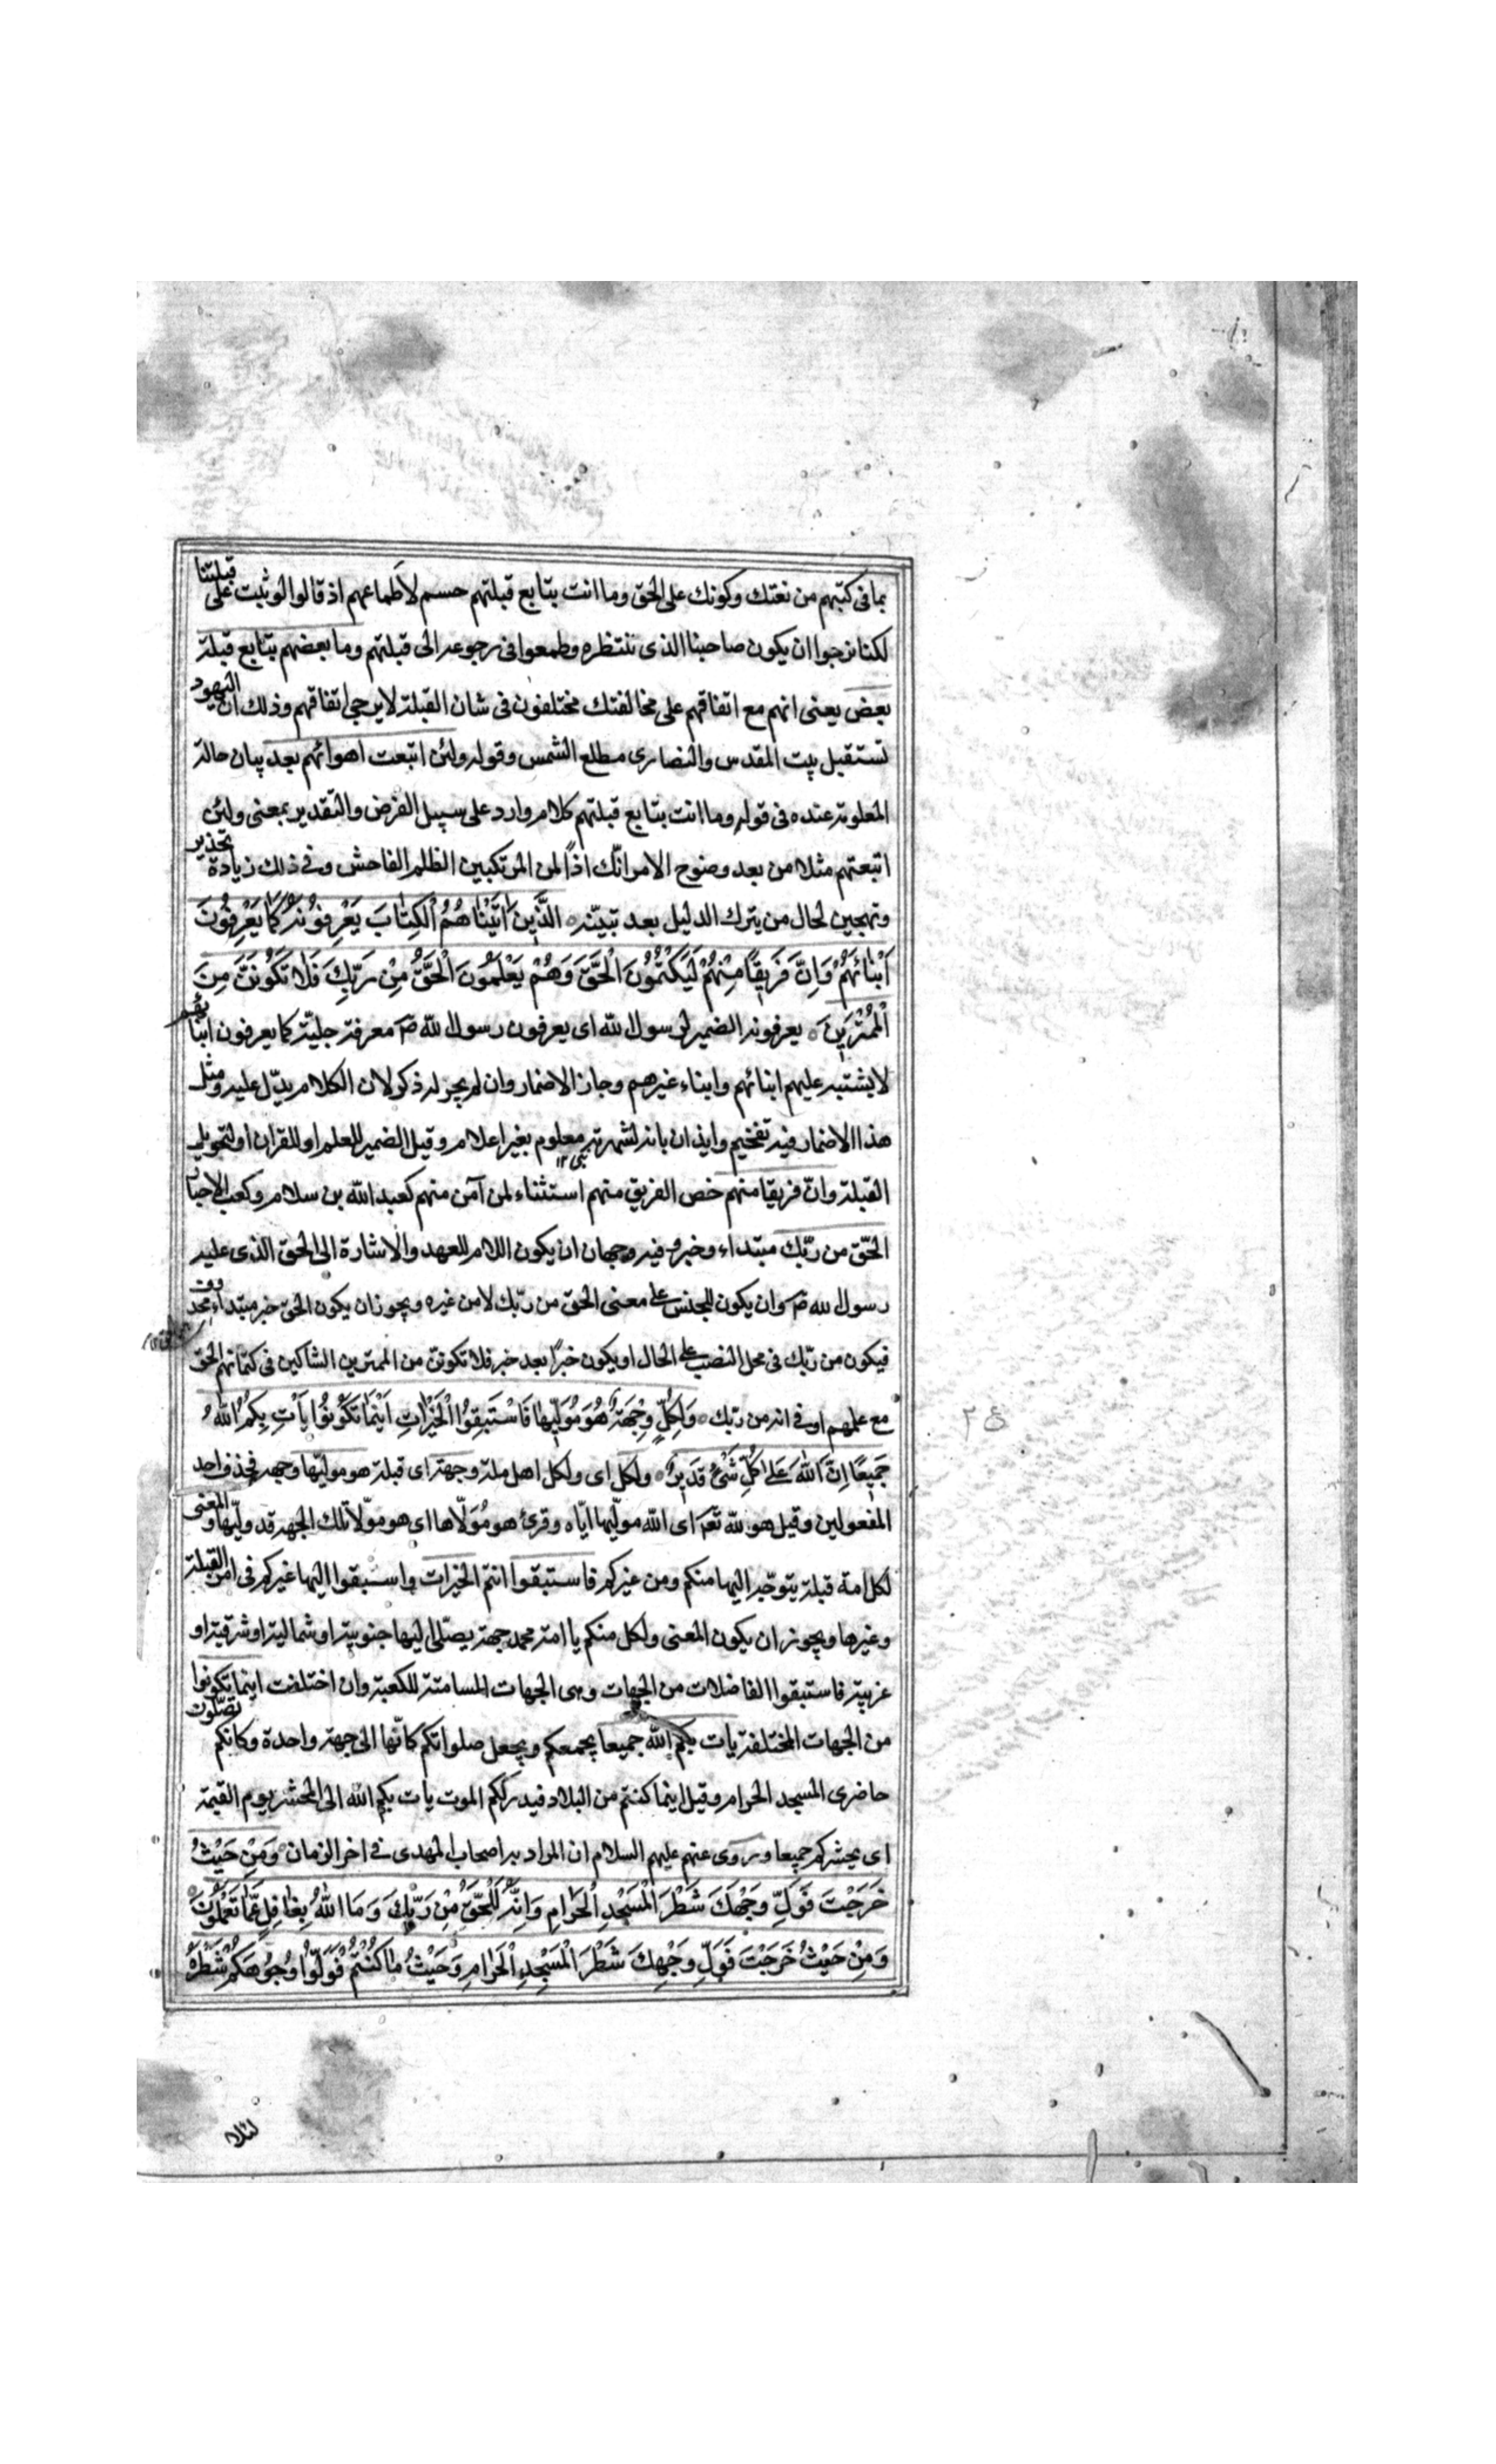 بما فى كتبهم من نعتك وكونك على الحق وما انت بتابع قبلتهم حسم لاطماعهم اذ قالوا لو ثبت على قبلتنا
لكنا نرجوا ان يكون صاحبنا الذى ننتظره وطمعوا فى رجوعه الى قبلتهم وما بعضهم بتابع قبلة
بعض يعنى انهم مع اتفاقهم على مخالفتك مختلفون فى شان القبلة لا يرجى اتفاقهم وذلك ان اليهود
تستقبل بيت المقدس والنصارى مطلع الشمس وقوله ولئن اتبعت اهوائهم بعد بيان حاله
المعلومة عنده فى قوله وما انت بتابع قبلتهم كلام وارد على سبيل الفرض والتقدير بمعنى ولئن
اتبعتهم مثلا من بعد وضوح الامر انّك اذًا لمن المرتكبين الظلم الفاحش وفى ذلك زيادة تحذير
وتهجين لحال من يترك الدليل بعد تبيّنه ٥ الَّذِينَ اٰتَيْنٰاهُمُ الْكِتٰابَ يَعْرِفُونَهُ كَمٰا يَعْرِفُونَ
اَبْنٰائَهُمْ وَاِنَّ فَرِيقًا مِنْهُمْ لَيَكْتُمُونَ الْحَقَّ وَهُمْ يَعْلَمُونَ الْحَقُّ مِنْ رَبِّكَ فَلٰا تَكُونَنَّ مِنَ
الْمُمْتَرِينَ ٥ يعرفونه الضمير لرسول لله اى يعرفون رسول لله ص معرفة جليّة كما يعرفون ابنائهم
لا يشتبه عليهم ابنائهم وابناء غيرهم وجاز الاضمار وان لم يجر له ذكر لان الكلام يدّل عليه ومثل
هذا الاضمار فيه تفخيم وايذان بانه لشهرته معلوم بغير اعلام وقيل الضمير للعلم او للقران او لتحويل
القبلة وانّ فريقا منهم خص الفريق منهم استثناء لمن آمن منهم كعبد الله بن سلام وكعب الاحبار
الحّق من ربّك مبتداء وخبر وفيه وجهان ان يكون اللام للعهد والاشارة الى الحق الذى عليه
رسول لله ص وان يكون للجنس على معنى الحق من ربّك لا من غيره ويجوز ان يكون الحق خبر مبتداء محذوف
فيكون من ربّك فى محل النصب على الحال او يكون خبرًا بعد خبر فلا تكوننّ من الممترين الشاكين فى كتمانهم الحق
مع علمهم او فى انه من ربك ٥ وَلِكُلٍّ وِجْهَةٌ هُوَ مُوَلِّيهٰا فَاسْتَبِقُوا الْخَيْرٰاتِ اَيْنَمٰا تَكُونُوا يَأْتِ بِكُمُ اللهُ
جَمِيعًا اِنَّ اللهَ عَلىٰ كُلِّ شَىْءٍ قَدِيرٌ ٥ ولكل اى ولكل اهل ملة وجهة اى قبلة هو موليّها وجهه فحذف احد
المفعولين وقيل هو لله تعم اى الله مولّيها ايّاه وقرئ هو مُوَلّاها اى هو مولّا تلك الجهه قد وليّها والمعنى
لكل امة قبلة يتوجّه اليها منكم ومن غيركم فاستبقوا انتم الخيرات واستبقوا اليها غيركم فى امر القبلة
وغيرها ويجوز ان يكون المعنى ولكل منكم يا امة محمد جهة يصلّى اليها جنوبية او شمالية او شرقية او
غربية فاستبقوا الفاضلات من الجهات وهى الجهات المسامتة للكعبة وان اختلفت اينما تكونوا
من الجهات المختلفة يات بكم الله جميعا يجمعكم ويجعل صلواتكم كانّها الى جهة واحدة وكانكم تصلّون
حاضرى المسجد الحرام وقيل اينما كنتم من البلاد فيدرككم الموت يات بكم الله الى المحشر يوم القيمة
اى يحشركم جميعا وروى عنهم عليهم السلام ان المراد به اصحاب المهدى فى اخر الزمان وَمِنْ حَيْثُ
خَرَجْتَ فَوَلِّ وَجْهَكَ شَطْرَ الْمَسْجِدِ الْحَرٰامِ وَاِنَّهُ لَلْحَقُّ مِنْ رَبِّكَ وَمَا اللهُ بِغٰافِلٍ عَمّٰا تَعْمَلُونَ
وَمِنْ حَيْثُ خَرَجْتَ فَوَلِّ وَجْهِكَ شَطْرَ الْمَسْجِدِ الْحَرٰامِ وَحَيْثُ مٰا كُنْتُمْ فَوَلُّوا وُجُوهَكُمْ شَطْرَهُ
لئلا